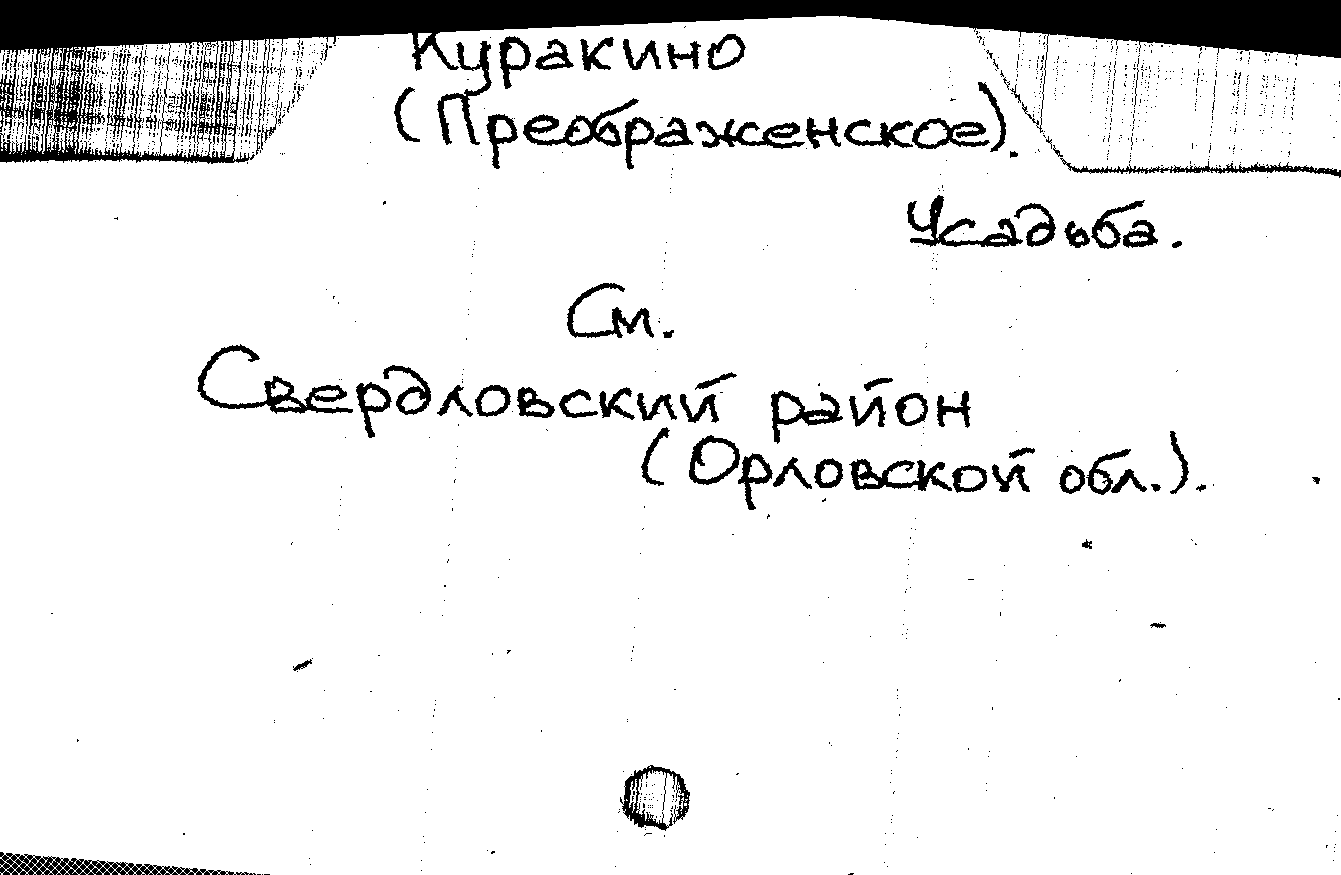 Куракино
(Преображенское).
Усадьба.
См.
Свердловский район
(Орловской обл.).